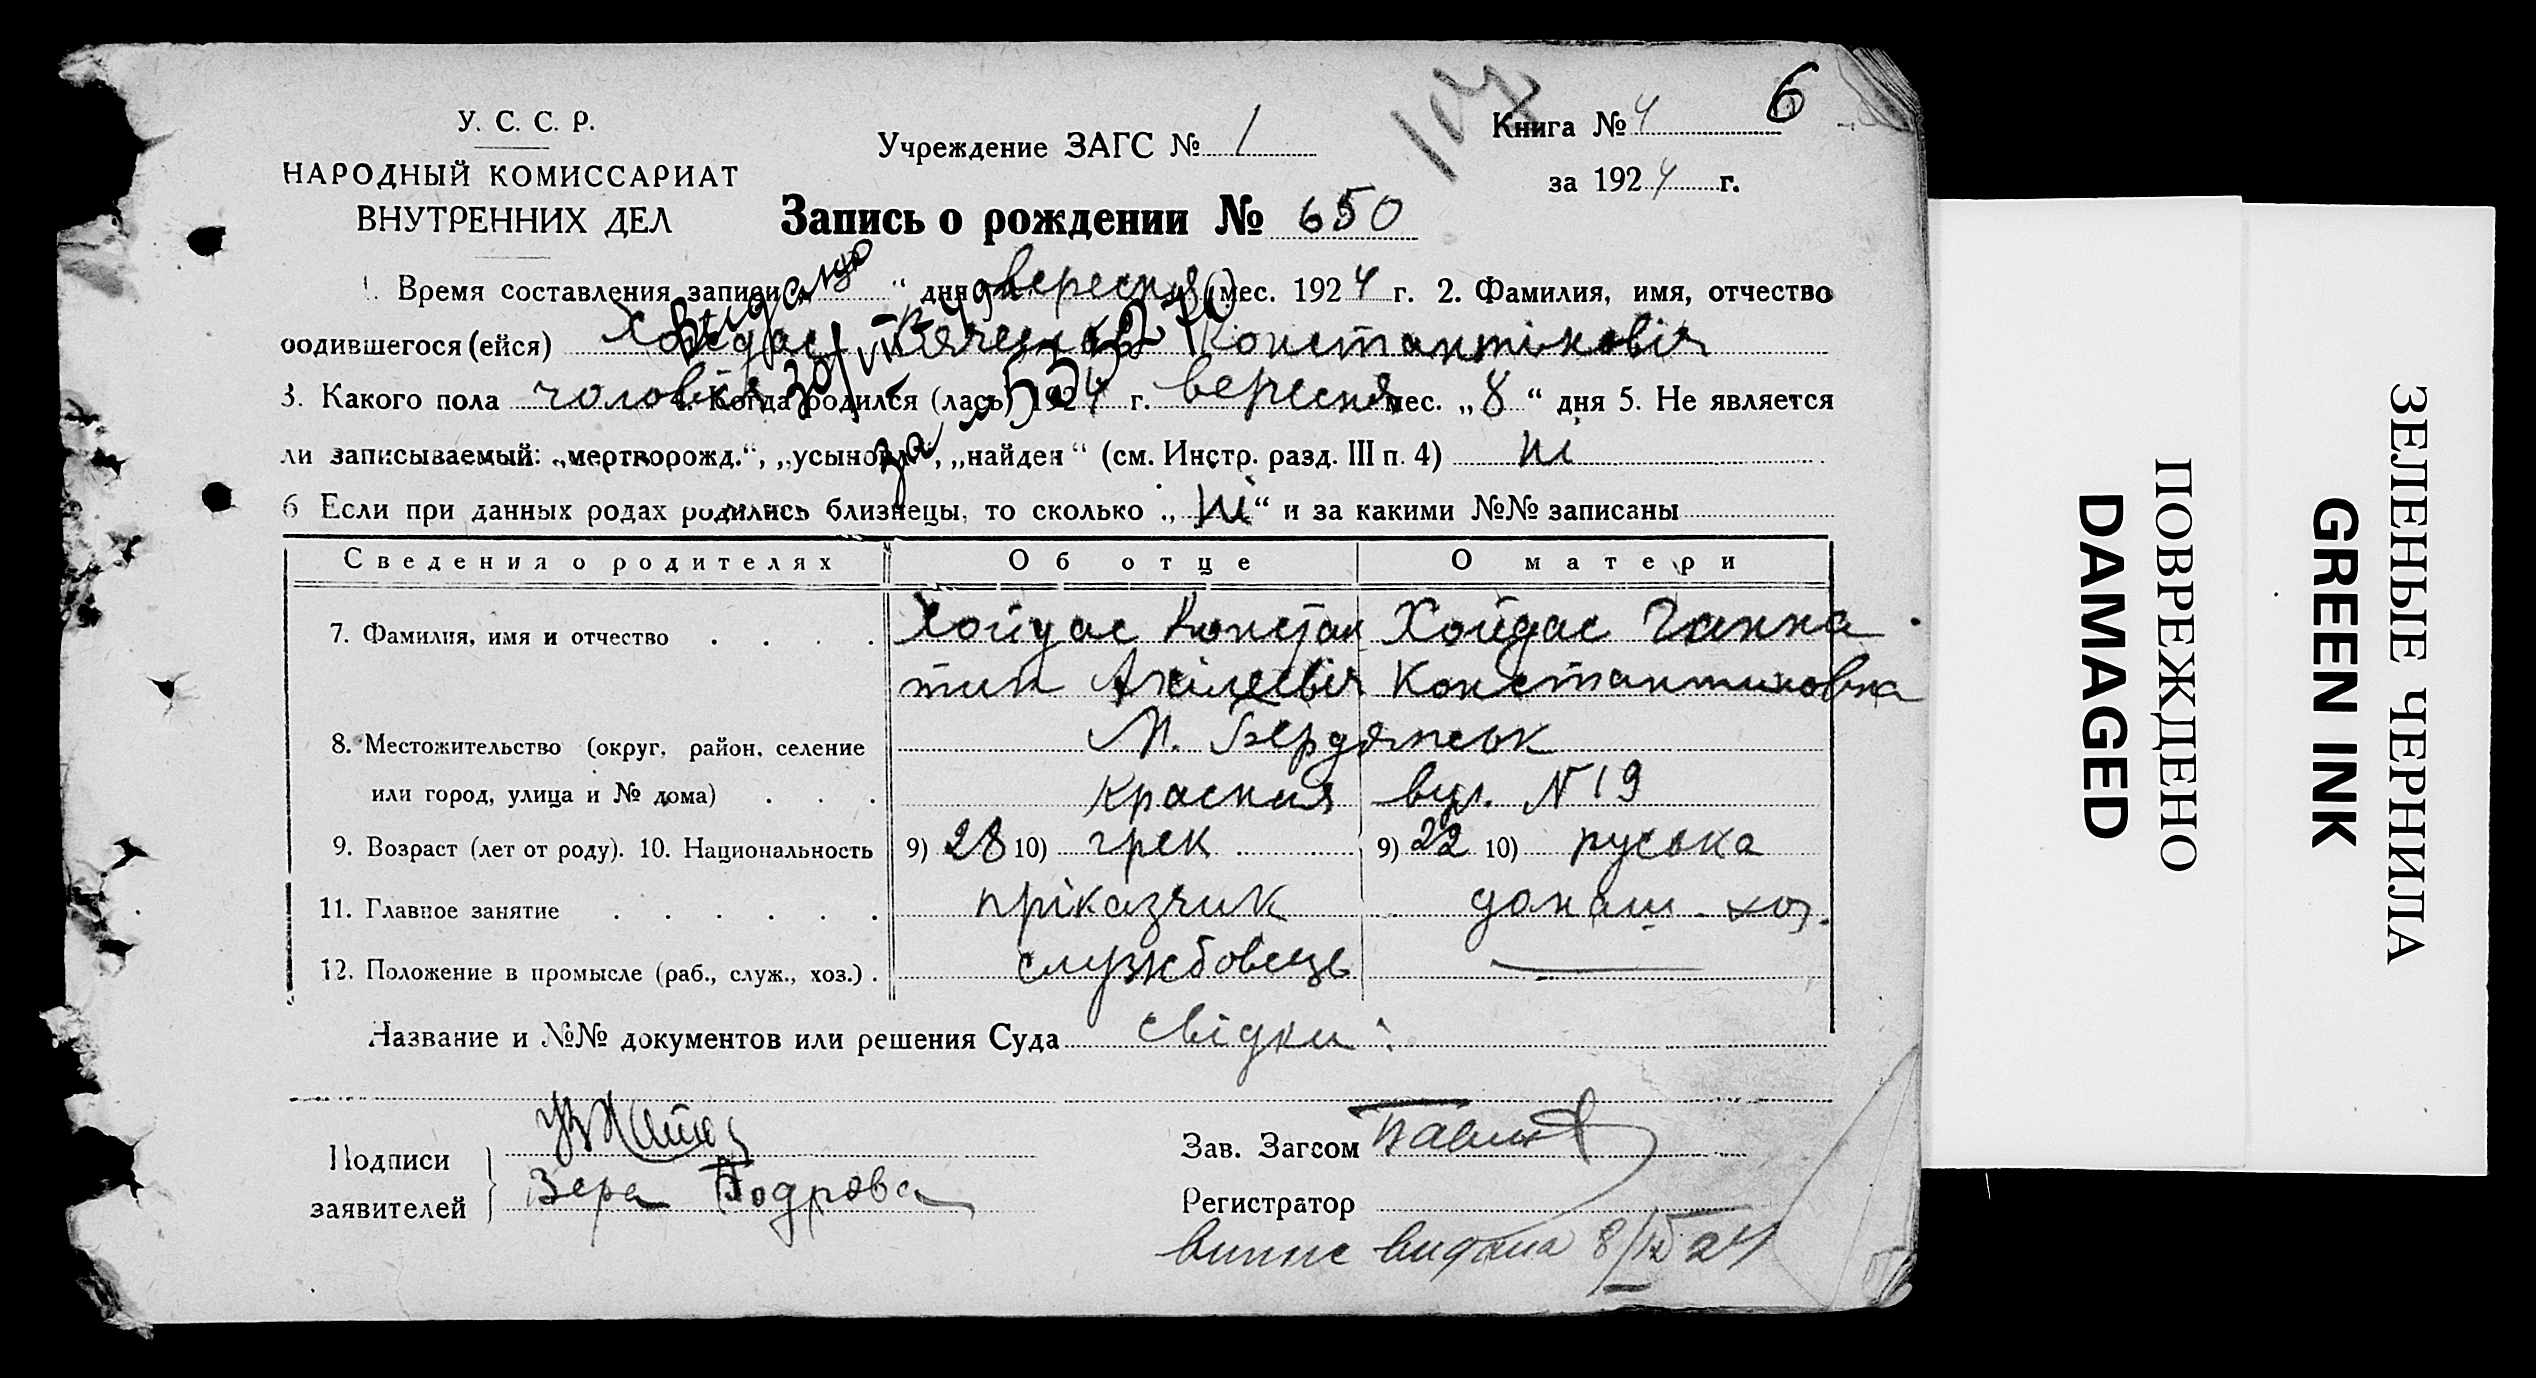 6
У. С. С. Р.
НАРОДНЫЙ КОМИССАРИАТ
ВНУТРЕННИХ ДЕЛ
Учреждение ЗАГС № 1
Книга № 4
за 1924 г.
Запись о рождении № 650
1. Время составления записи “ дня вересня мес. 1924 г. 2. Фамилия, имя, отчество
родившегося (ейся) Хойдас Вячеслав Константіновіч
3. Какого пола чоловіч 4. Когда родился (лась) 1924 г. вересня мес. „8“ дня 5. Не является
ли записываемый: „мертворожд.“, „усыновл“, „найден“ (см. Инстр. разд. III п. 4) ні
6 Если при данных родах родились близнецы, то сколько „ні“ и за какими №№ записаны
Выдано
за №
Сведения о родителях Об отце О матери
7. Фамилия, имя и отчество . . . . Хойдас Констан Хойдас Ганна
тин Ахілеевіч Константиновна
8. Местожительство (округ, район, селение М. Бердянськ
или город, улица и № дома) . . . Красния вул. N 19
9. Возраст (лет от роду). 10. Национальность 9) 28 10) грек 9) 22 10) руська
11. Главное занятие . . . . . . пріказчик домаш. хоз.
12. Положение в промысле (раб., служ., хоз.) . службовець —
Название и №№ документов или решения Суда свідки:
Подписи
заявителей
Вера Бодрова
Зав. Загсом
Регистратор
випис видана 8/IX 24
ПОВРЕЖДЕНО
DAMAGED
ЗЕЛЕНЫЕ ЧЕРНИЛА
GREEN INK